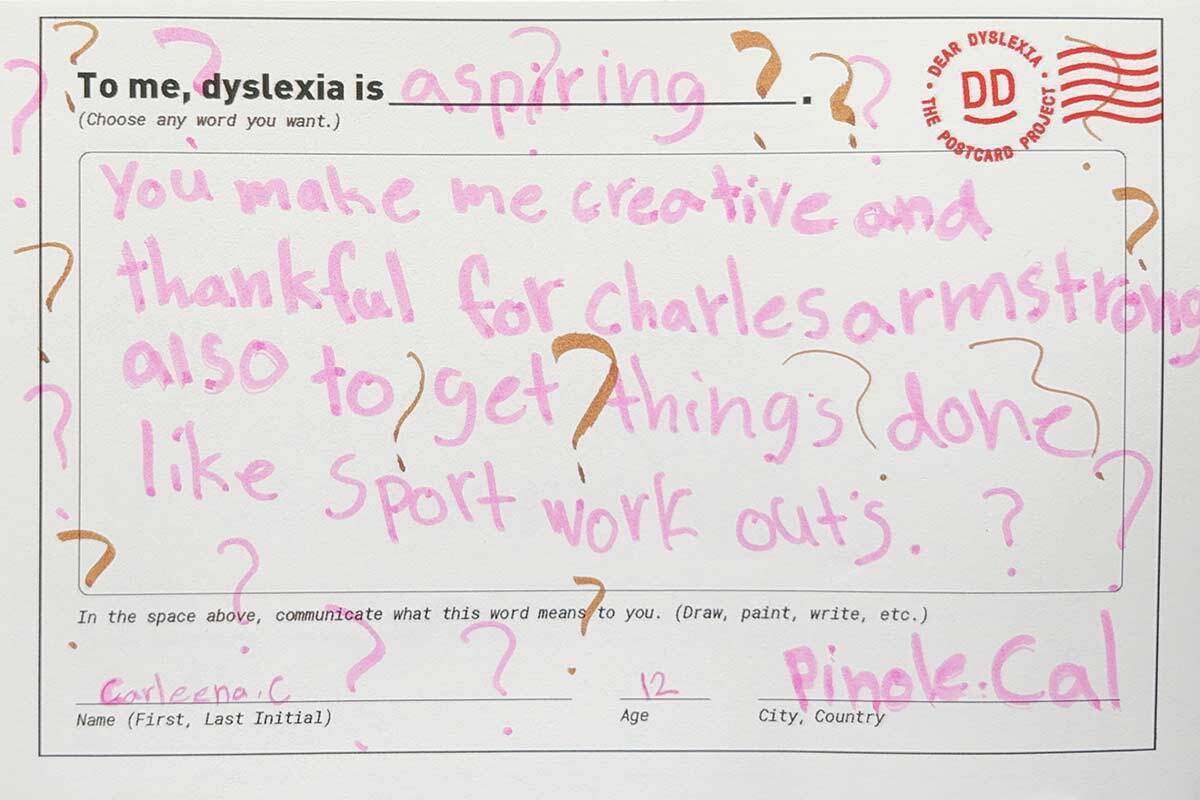 To me, dyslexia is aspiring.
(Choose any word you want.)
DEAR DYSLEXIA • THE POSTCARD PROJECT •
DD
you make me creative and
thankful for charles armstrong
also to get things done
like sport work out's. ?
In the space above, communicate what this word means to you. (Draw, paint, write, etc.)
Carleena.C
12
Pinole.Cal
Name (First, Last Initial)
Age
City, Country